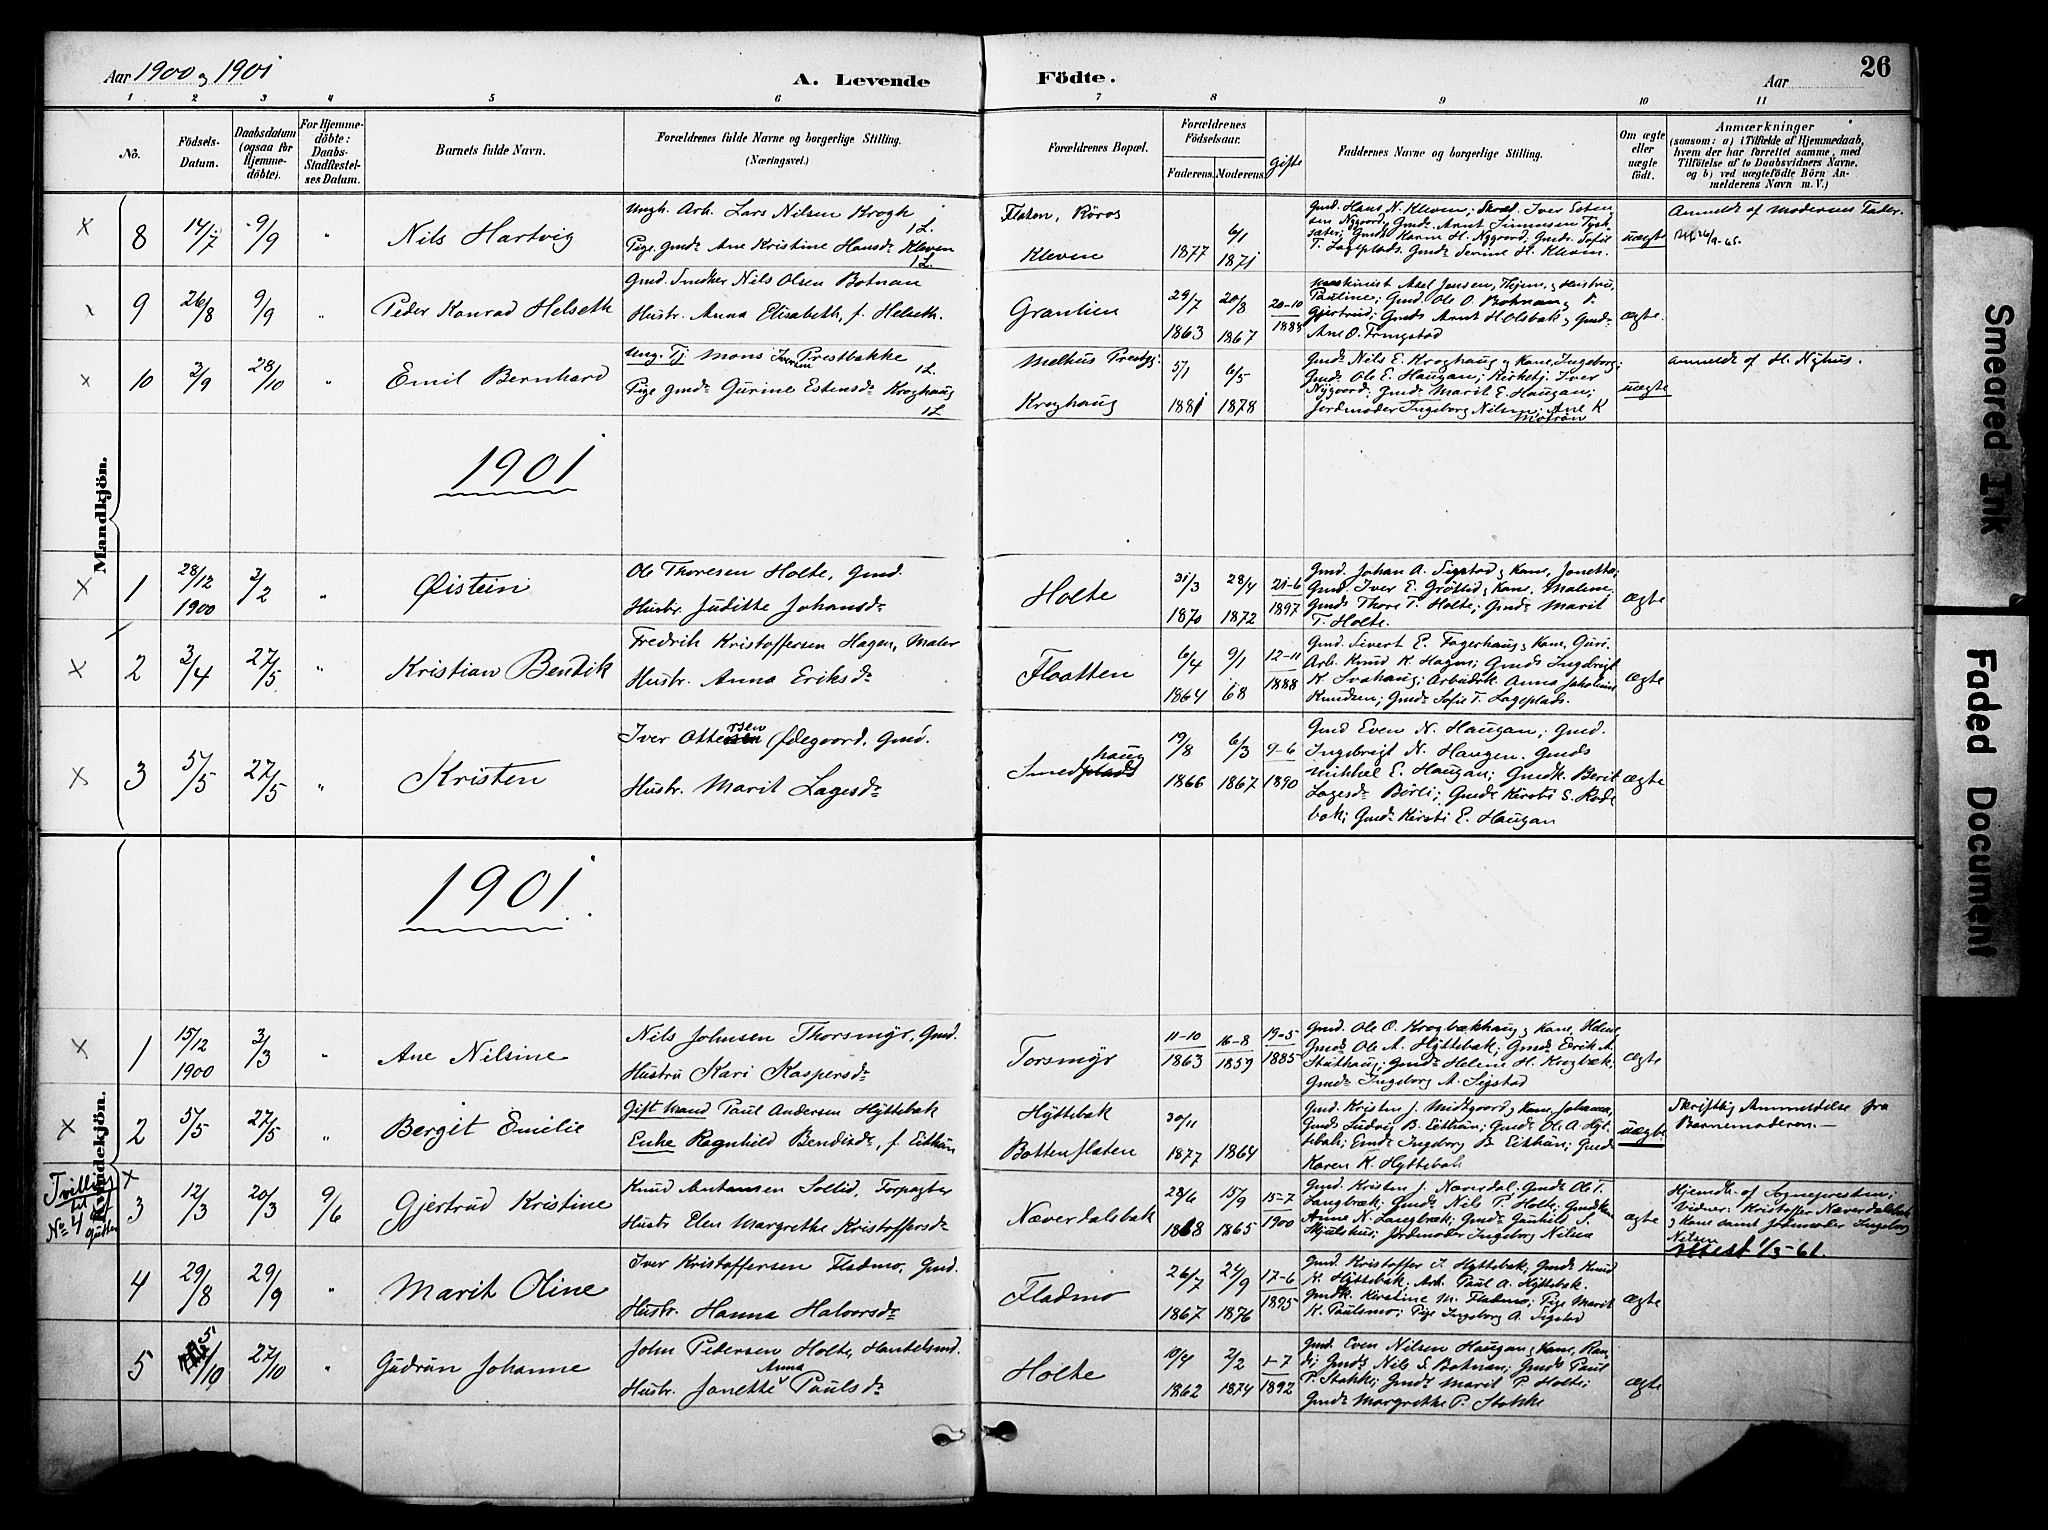 Aar 1900 og 1901
A. Levende Födte.
Aar
26
1 2 3 4 5 6 7 8 9 10 11
No.
Födsels-Datum.
Daabsdatum (ogsaa for Hjemme-döbte).
For Hjemme-döbte: Daabs-Stadfæstel-ses Datum.
Barnets fulde Navn.
Forældrenes fulde Navne og borgerlige Stilling.
(Næringsvei.)
Forældrenes Bopæl.
Forældrenes Födselsaar.
Faderens. Moderens.
Gifte
Faddernes Navne og borgerlige Stilling.
Om ægte eller uægte födt.
Anmærkninger
(saasom: a) i Tilfælde af Hjemmedaab, hvem der har forrettet samme, med Tilföielse af to Daabsvidners Navne, og b) ved uægtefödte Börn Anmelderens Navn m. V.)
Mandkjön.
8 14/7 9/9 " Nils Hartvig
Ungk. Arb. Lars Nilsen Krogh 1 L.
Pige gmdr Ane Kristine Hansdr Kleven 1 L.
Flaten, Röros
Kleven
1877 6/1 1871
Gmd. Hans N. Kleven; Skræd. Iver Esten
T. Lageplads. Gmdr Serine H. Kleven.
uægte
Anmeldt af Moderens Fader.
9 26/8 9/9 " Peder Konrad Helseth
Gmd. Snedker Nils Olsen Botnan
Hustr. Anna Elisabeth, f. Helseth.
Grantien
29/7 1863 20/8 1867 20-10 1888
Maskinist Axel Jensen, Hjem, og Hustru,
Pauline; Gmd. Ole O. Botnan og
Gjertrud; Gmds Arnt H. Olsbak og Gmdr
Ane O. Tringstad
ægte.
10 2/9 28/10 " Emil Bernhard
Ung. Tj Mons Iversen Prestbakke 1 L.
Pige gmdr Gurine Estensdr Kroghaug 1 L.
Melhus Prestgj.
Kroghaug
5/1 1881 6/5 1878
Gmd. Nils E. Kroghaug og Kane, Ingeborg;
Gmds Ole E. Haugan; Kirketj. Iver
Nygaard; Gmdr Marit E. Haugan;
Jordmoder Ingeborg Nilsen; Ane K
Moträn
uægte
Anmeldt af H. Nyhus.
1901
1 28/12 1900 3/2 " Øistein
Ole Thoresen Holte, Gmd.
Hustr. Juditte Johansdr
Holte
31/3 1870 28/4 1872 21-6 1897
Gmd. Johan A. Sigstad og Kane, Jonetta;
Gmd. Iver E. Grötlid og Kane, Malene;
Gmds Thore T. Holte; Gmdr Marit
T. Holte.
ægte
2 3/4 27/5 " Kristian Bendik
Fredrik Kristoffersen Hagen, Maler
Hustr. Anna Eriksdr
Floatten
6/4 1864 9/1 68 12-11 1888
Gmd. Sivert E. Fagerhaug og Kane, Guri.
Arb. Knud K. Hagen; Gmds Ingebrigt
K. Svahaug; Arbeidsk. Anna Jakobine
Knudsen; Gmdr Sofie T. Lageplads.
ægte
3 5/5 27/5 " Kristen
Iver Ottersen Ødegaard, Gmd.
Hustr. Marit Lagesdr
Smedhaug
19/8 1866 6/3 1867 9-6 1890
Gmd Even N. Haugan; Gmd.
Ingebrigt N. Haugen. Gmds
Mikkel E. Haugan; Gmdk. Berit
Lagesdr Börli; Gmdr Kirsti S. Rode
bak; Gmdr Kirsti E. Haugan
ægte
Kvindekjön.
1901.
1 15/12 1900 3/3 " Ane Nilsine
Nils Johnsen Thorsmyr, Gmd.
Hustru Kari Kaspersdr
Torsmyr
11-10 1863 16-8 1859 19-5 1885
Gmd. Ole O. Krogbækhaug og Kane, Helene,
Gmds Ole A. Hyttebak; Gmds Eerik A.
Stuthaug; Gmdr Helene H. Krogbæk;
Gmdr Ingeborg A. Sigstad
ægte
2 5/5 27/5 " Bergit Emilie
Gift Mand Paul Andersen Hyttebak
Enke Ragnhild Bendixdr, f. Eithun
Hyttebak
Bottenflaten
30/11 1877 1864
Gmd. Kristen J. Midtgaard og Kane, Johanna,
Gmds Ludvig B. Eithun; Gmds Ol. A. Hyt-
tebak; Gmdr Ingeborg B. Eithun; Gmdr
Karen K. Hyttebak
uægte
Skriftlig Anmeldelse fra
Barnemoderen.—
Tvilling til No 4 Gutter
3 12/3 20/3 9/6 Gjertrud Kristine
Knud Antonsen Sollid, Forpagter
Hustr Elen Margrethe Kristoffersdr
Næverdalsbak
28/6 1868 15/9 1865 15-7 1900
Gmd. Kristen J. Næverdal. Gmds Ole T.
Langbræk; Gmds Nils P. Holte; Gmdkone
Anne N. Langbræk; Gmdr Gunhild S.
Skjulshus; Jordmoder Ingeborg Nilsen
ægte
Hjemdt. af Sognepresten;
Vidner: Kristoffer Næverdalsbak
og Kane samt Jordmoder Ingeborg
Nilsen
Attest 1/3-61.
4 29/8 29/9 " Marit Oline
Iver Kristoffersen Fladmo, Gmd.
Hustr. Hanna Halvorsdr
Fladmo
26/7 1867 24/9 1876 17-6 1895
Gmd. Kristoffer J. Hyttebak; Gmds Knud
K. Hyttebak; Arb. Paul A. Hyttebak.
Gmdk. Kirstine M. Fladmo; Pige Marit
K. Paulsmo; Pige Ingeborg A. Sigstad
ægte
5 5/10 27/10 " Gudrun Johanne
John Pedersen Holte, Handelsmd.
Hustr. Jonette Anna Paulsdr
Holte
10/4 1862 2/2 1874 1-7 1892
Gmd. Even Nilsen Haugan og Kane, Ran-
di; Gmds Nils S. Botnan; Gmds Paul
P. Stokke; Gmdr Marit P. Holte;
Gmdr Margrethe P. Stokke
ægte
Smeared Ink
Faded Document